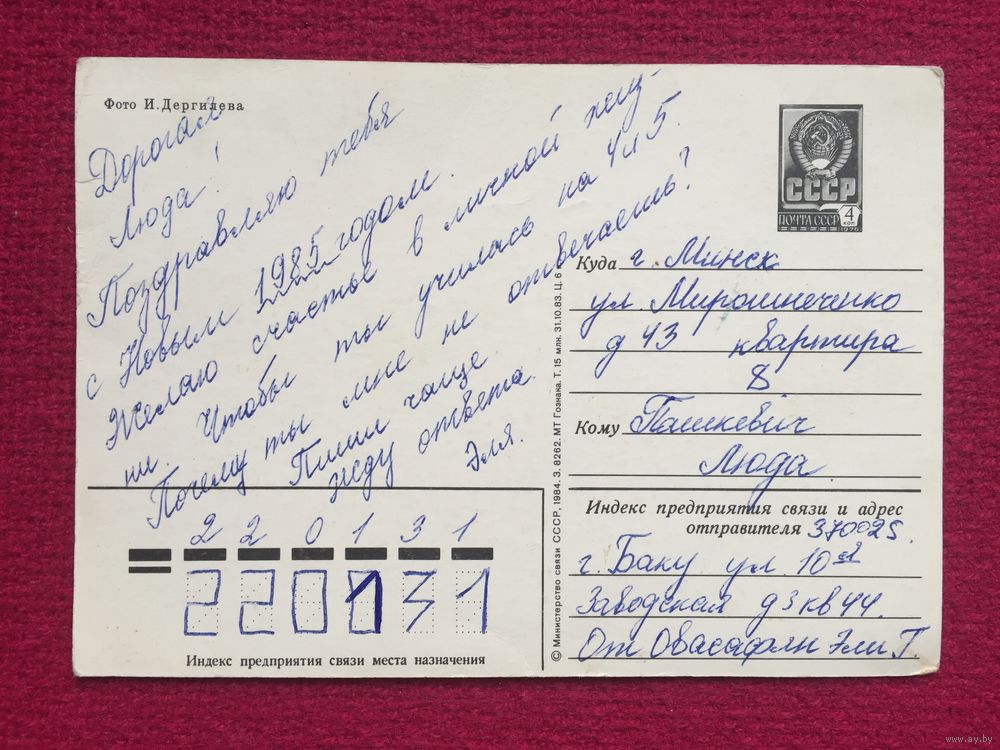 Фото И. Дергилева
Дорогая
Люда!
Поздравляю тебя
с Новым 1985 годом.
Желаю счастье в личной жиз-
ни. Чтобы ты училась на 4 и 5.
Почему ты мне не отвечаешь?
Пиши чаще
жду ответа.
Эля.
СССР
ПОЧТА СССР 4 коп
1976
Куда г. Минск
ул. Мирошнеченко
д 43 квартира
8
Кому Пашкевич
Люда
Индекс предприятия связи и адрес
отправителя 370025.
г. Баку ул. 10ая
Заводская д 3 кв 44.
От Овасафян Эли Г.
2 2 0 1 3 1
220131
Индекс предприятия связи места назначения
© Министерство связи СССР, 1984. З. 8262. МТ Гознака. Т. 15 млн. 31.10.83. Ц. 6
www.ay.by